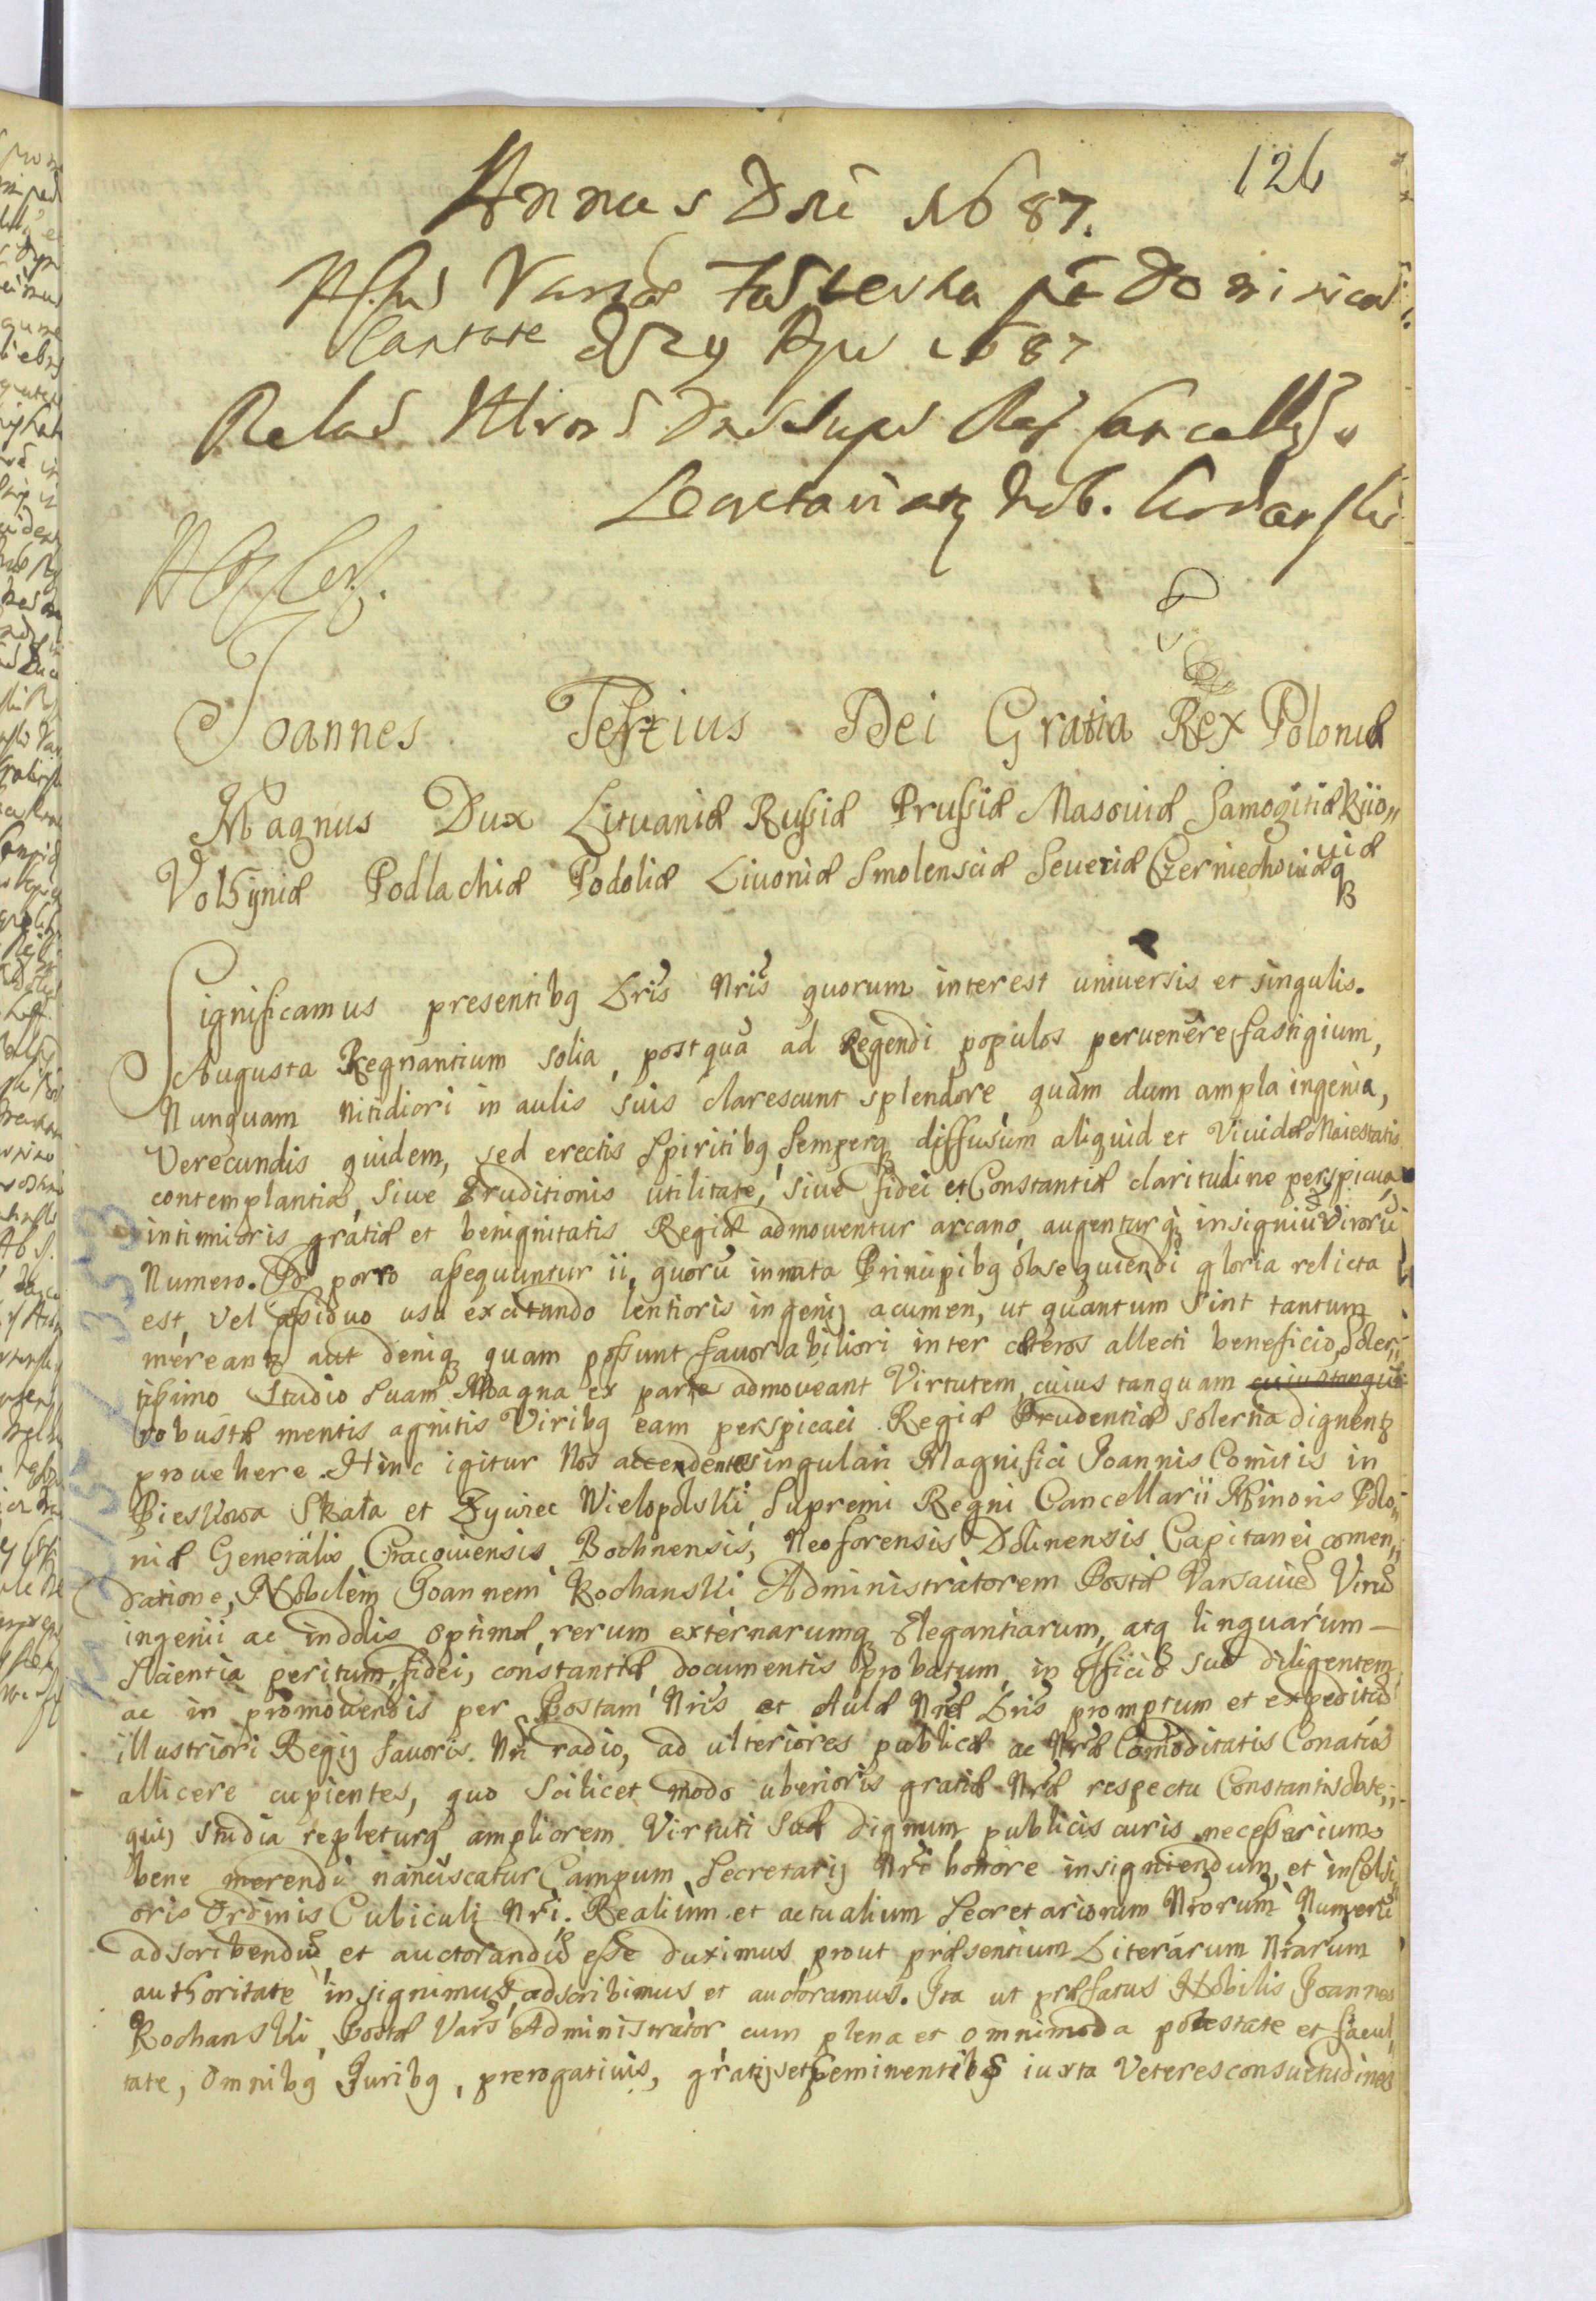 126
Annus Dni 1687.
Cantate 29 1687
Cancellarij
Secretariatus Nob. Kochanski
Joannes Tertius Dei Gratia Rex Poloniæ
Magnus Dux Lituaniæ Rusſiæ Prusſiæ Masouiæ Samogitiæ Kiio„
uiæ
Volhyniæ Podlachiæ Podoliæ Liuoniæ Smolensciæ Seueriæ Czerniechouiæq
Significamus presentibg Lris Nris quorum interest uniuersis et singulis.
Augusta Regnantium solia, postquã ad Regendi populos peruenere fastigium,
Nunquam nitidiori in aulis suis clarescunt splendore, quàm dum ampla ingenia,
Verecundis quidem, sed erectis Spiritibg Semperq diffusum aliquid et Viuidæ Maiestatis
contemplantia, siue Eruditionis utilitate, siue fidei et Constantiæ claritudine perspicua
intimioris gratiæ et benignitatis Regiæ admouentur arcano, augenturq insigniũ Virorũ
Numero. Id porro asſequuntur ii, quorũ innata Principibg obsequiendi gloria relicta
est, vel asſiduo usu excitando lentioris ingenij acumen, ut quantum sint tantum
mereant aut deniq quam posſunt fauorabiliori inter cæteros allecti beneficio, Soler„
tisſimo Studio Suam Magna ex parte admoueant Virtutem, cuius tanquam cuius tanquã
robustæ mentis agnitis Viribg eam perspicaci Regiæ Prudentiæ solertia dignent
prouehere. Hinc igitur Nos accedente singulari Magnifici Joannis Comitis in
Pieskowa Skała et Zywiec Wielopolski Supremi Regni Cancellarii Minoris Polo„
niæ Generalis Cracouiensis Bochnensis, Neoforensis Dolinensis Capitanei comen„
datione, Nobilem Joannem Kochanski Administratorem Postæ Varsauieñ Virũ
ingenii ac indolis optimæ, rerum externarumq Elegantiarum, atq linguarum—
Scientia peritum, fidei, constantiæ documentis probatum, in officio suo diligentem
ac in promouendis per Postam Nris et Aulæ Nræ Lris promptum et expeditũ
illustriori Regij fauoris Nri radio, ad ulteriores publicæ ac Nræ Comoditatis Conatus
allicere cupientes, quo Scilicet modo uberioris gratiæ Nræ respectu Constantis Obse„
quij studia repleturq ampliorem Virtuti Suæ dignum publicis curis necesſarium
bene merendi nanciscatur Campum, Secretarij Nri honore insigniendum, et in Celsi„
oris Ordinis Cubiculi Nri. Realium et actualium Secretariorum Nrorum Numerũ
adscribendũ et auctorandũ esſe duximus, prout præsentium Literarum Nrarum
authoritate insignimus, adscribimus et auctoramus. Ita ut præfatus Nobilis Joannes
Kochanski, Postæ Vars Administrator, cum plena et omnimoda potestate et facul„
tate, Omnibg Juribg, prerogatiuis, gratijs et Peminentibg iuxta Veteres consuetudines